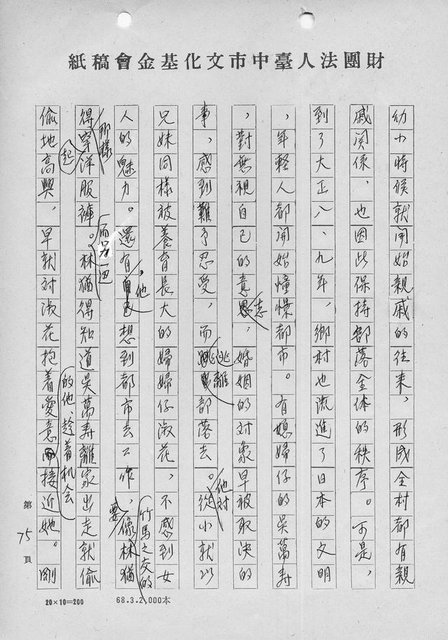 財團法人臺中市文化基金會稿紙
幼小時候就開始親戚的往來，形成全村都有親
戚関係，也因此保持部落全体的秩序。可是，
到了大正八、九年，鄉村也流進了日本的文明
，年輕人都開始憧憬都市。有媳婦仔的吳萬寿
，對無視自己的意志，婚姻的对象早被取決的
事，感到難予忍受，而逃離部落去。他対從小就以
兄妹同樣被養育長大的媳婦仔淑花，不感到女
人的魅力。還有，他想到都市去工作，要像林猶
得那樣穿起洋服褲。而另一边林猶得知道吳萬寿離家出走就偷
偷地高興，早就対淑花抱着愛意的他，趁着机会接近她。剛
竹馬之友的
第 75 頁
20×10=200
68.3.2,000本